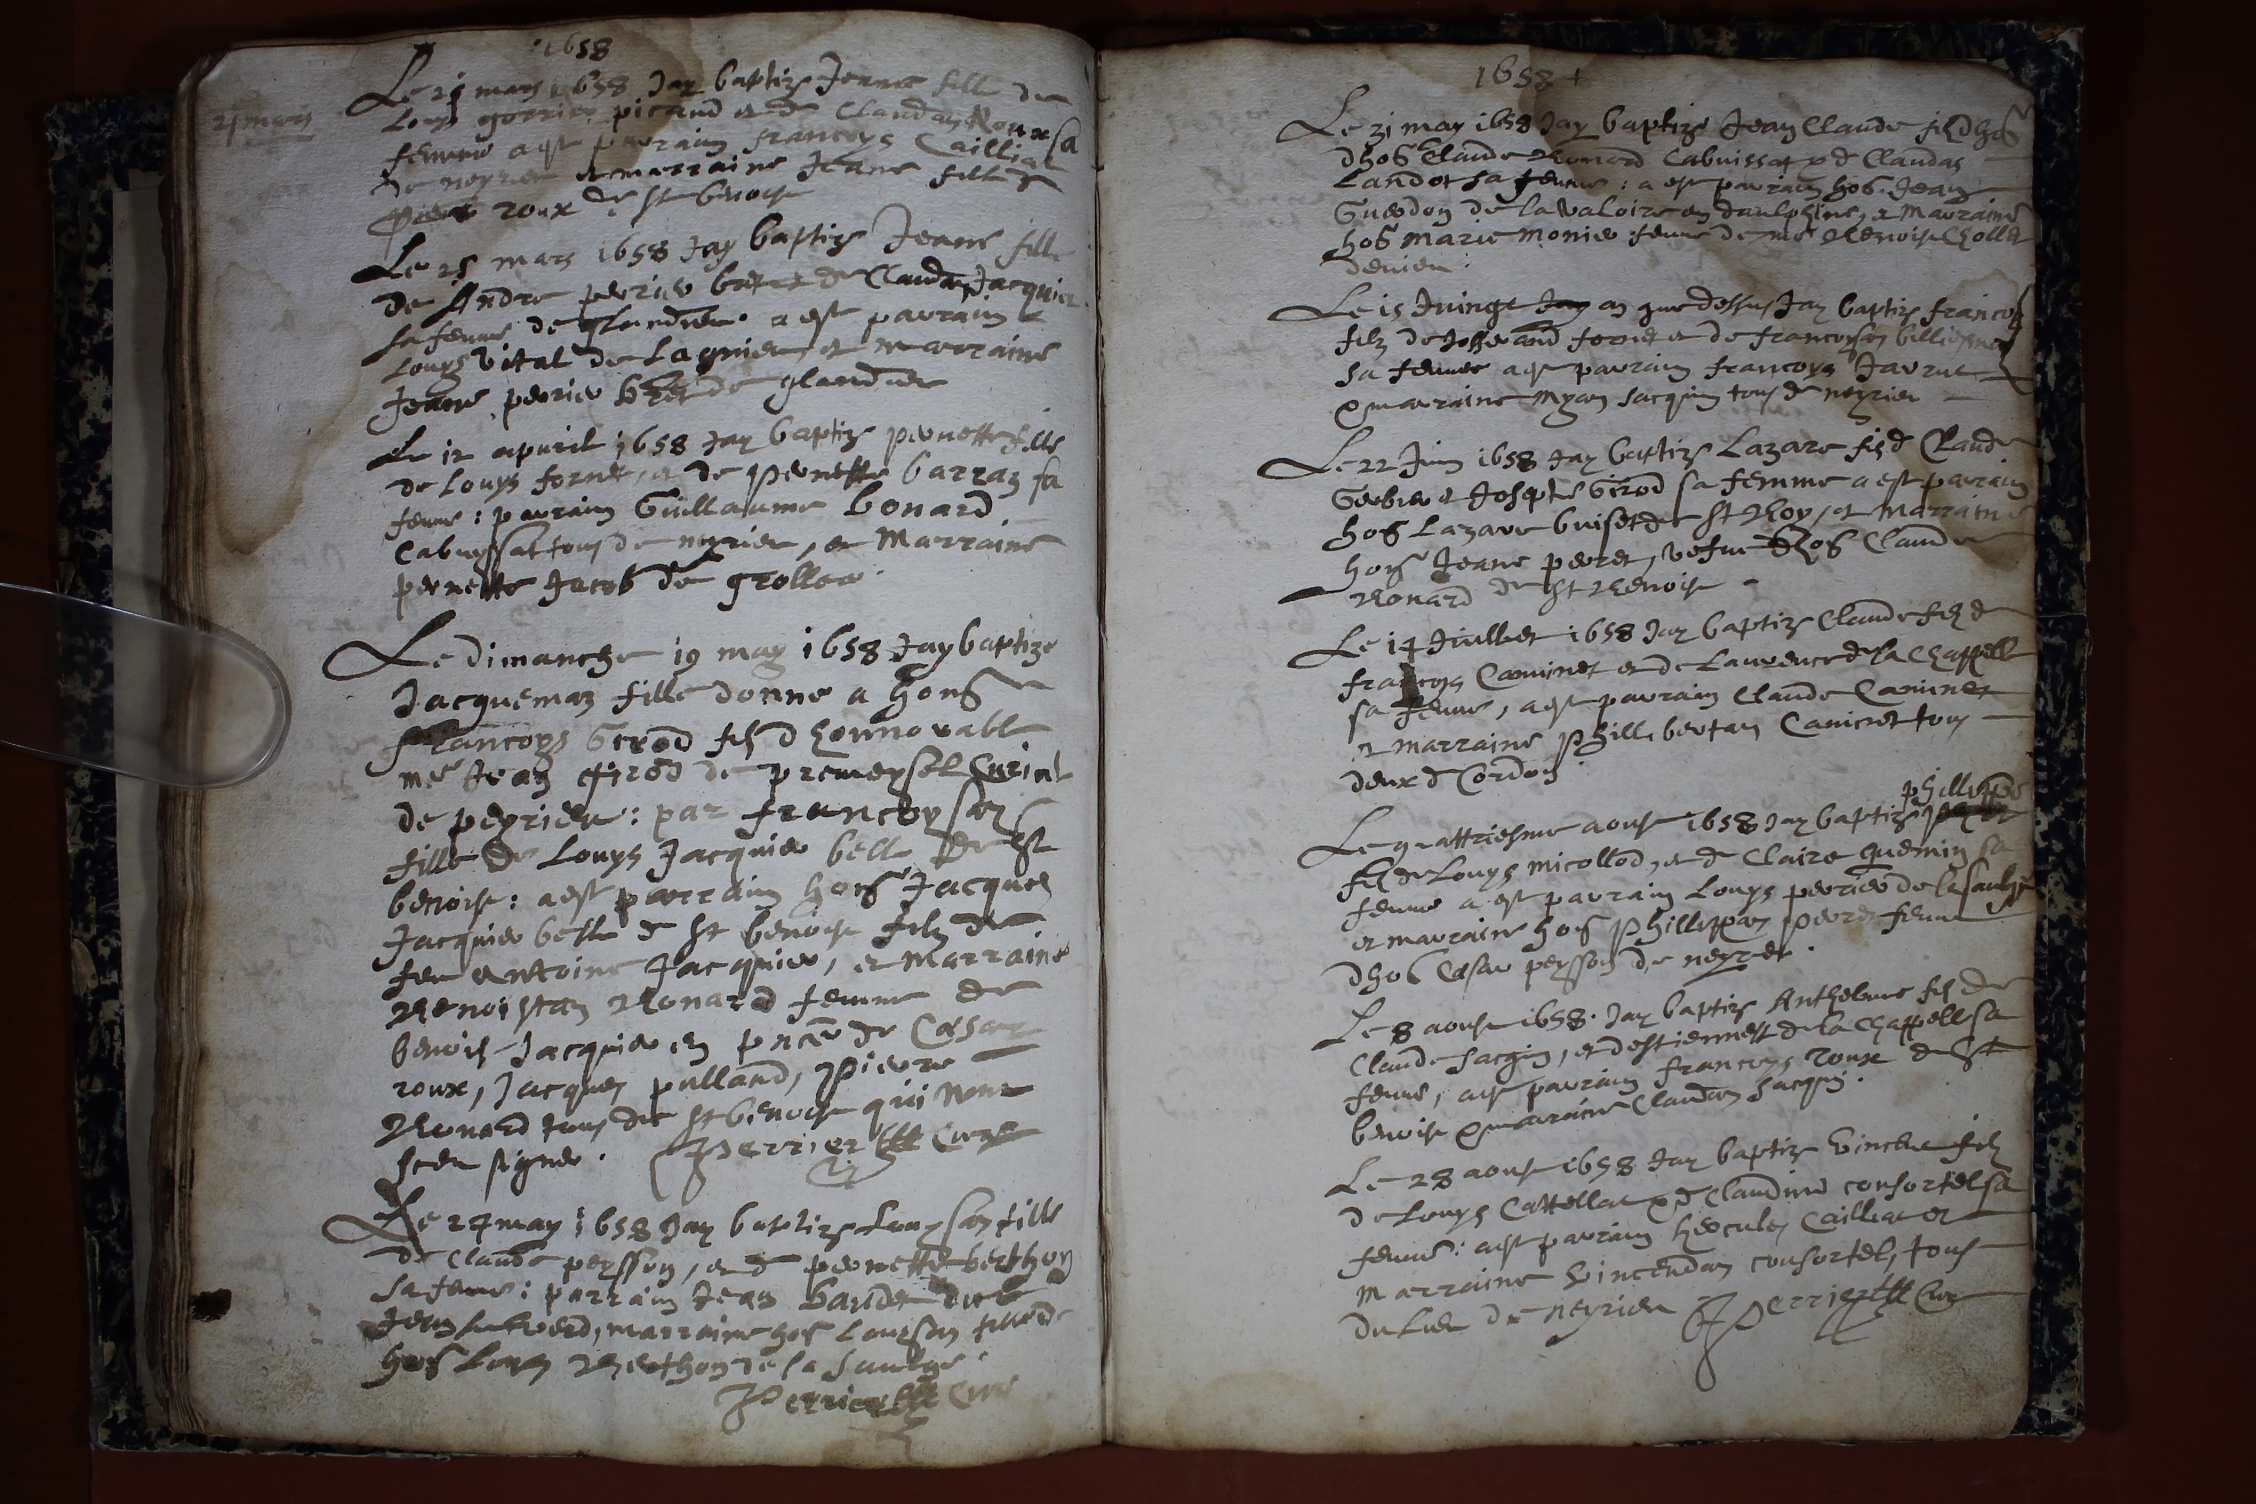 1658
21 mars
Le 21 mars 1658 Jay baptize Jeanne fille de
Louys gorrier picaud et de Claudaz Roux sa
femme a este parrain francoys Cailliat
de neyrieu et marraine Jeane fille de
roux de St benoist
Le 25 mars 1658 Jay baptize Jeane fille
de Andre perrier et de Claudaz Jacquier
sa femme de glandieu a este parrain
Louys vital de Lagnieu, et marraine
Jeane perrier de glandieu
Le 12 apvril 1658 Jay baptize pernette fille
de Louys fornet, et de Pernette barraz sa
feme : parrain Guillaume bonard
Cabuyssat tous de neyrieu, et Marraine
pernette Jacob de grollea
Le dimanche 19 may 1658 Jay baptize
Jacquemaz fille donne a hons
francoys Girod filz d honnorable
me Jean Girod de premeysel Curial
de peyrieu : par francoysaz
fille de Louys Jacquier belle de St
benoist : a este parrain hons Jacques
Jacquier belle de St benoist filz de
feu antoine Jacquier, et Marraine
Benoistaz Bonard femme de
benoist Jacquier en pnce de Cesar
roux, Jacques pulland, Pierre
Bonard tous de St benoist qui nont
sceu signer. Perrier Cure
Le 24 may 1658 Jay baptize Louysaz fille
de Claude peysson, et de pernette berthon
sa feme : parrain Jean baude dict
Jean, marraine hos Louyson fille de
hos Louys Berthon de la saulge.
Perrier Cure
1658 +
Le 31 may 1658 Jay baptize Jean Claude filz dhos
dhos Claude Bonard Cabuissat & de Claudaz
Landot sa femme : a este parrain hos. Jean
Guerdon de la valoire en daulphine, et Marraine
hos Marie Monier femme de me Benoist Chollet
Le 15 Juing an que dessus Jay baptize francoys
filz de Josserand fornet et de francoysaz
sa femme a este parrain francoys
& marraine Myaz Jacquin tous de neyrieu
Le 22 Juin 1658 Jay baptize Lazare filz de Claude
Gerbier et Josephte Girod sa femme a este parrain
hos Lazare buiset de St Boy, et Marraine
hons Jeane peret, vefve dhos Claude
Bonard de St Benoist
Le 14 Juillet 1658 Jay baptize Claude filz de
francoys Caminet et de Laurence de la Chappelle
sa femme, a este parrain Claude Caminet
et marraine Phillibertaz Caminet tous
deux de Cordon
phillippe
Le quattriesme aoust 1658 Jay baptize
filz de Louys micollod, et de Claire guemin sa
femme a este parrain Louys perrier de la saulge
et marraine hos Phillippaz peret femme
dhos Cesar peysson de neyrieu.
Le 8 aoust 1658. Jay baptize Anthelme filz de
Claude Jacquin, et destiennette de la Chappelle sa
femme, a este parrain francoys roux de St
benoist & marraine Claudaz Jacquin.
Le 28 aoust 1658 Jay baptize Vincent filz
de Louys Cattellat & de Claudine consortel sa
femme : a este parrain hercules Cailliat et
marraine Vincendaz consortel, tous
du lieu de neyrieu Perrier Cure